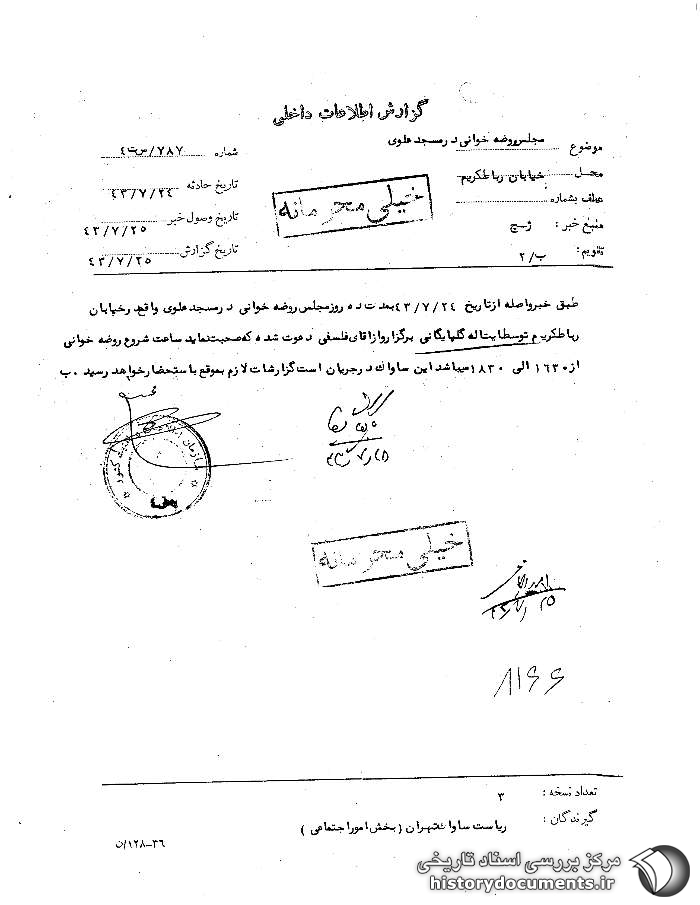 گزارش اطلاعات داخلی
موضوع مجلس روضه خوانی در مسجد علوی
محل خیابان رباطکریم
عطف بشماره
منبع خبر : ژـ چ
تقویم: ب/۲
شماره ۷۸۷/س ت ٤
تاریخ حادثه ٤۳/۷/۲٤
تاریخ وصول خبر ٤۳/۷/۲۵
تاریخ گزارش ٤۳/۷/۲۵
خیلی محرمانه
طبق خبر واصله از تاریخ ٤۳/۷/۲٤ بمدت ده روز مجلس روضه خوانی در مسجد علوی واقع در خیابان
رباطکریم توسط ایت اله گلپایگانی برگزار و از اقای فلسفی دعوت شده که صحبت نماید ساعت شروع روضه خوانی
از ۱٦۳۰ الی ۱۸۳۰ میباشد این ساواک در جریان است گزارشات لازم بموقع باستحضار خواهد رسید . ب
سازمان
کشور
خیلی محرمانه
۸۱۶۶
تعداد نسخه : ۳
گیرندگان : ریاست ساواک تهران ( بخش امور اجتماعی )
۳٦-۱۲۸/ن
مرکز بررسی اسناد تاریخی
historydocuments.ir